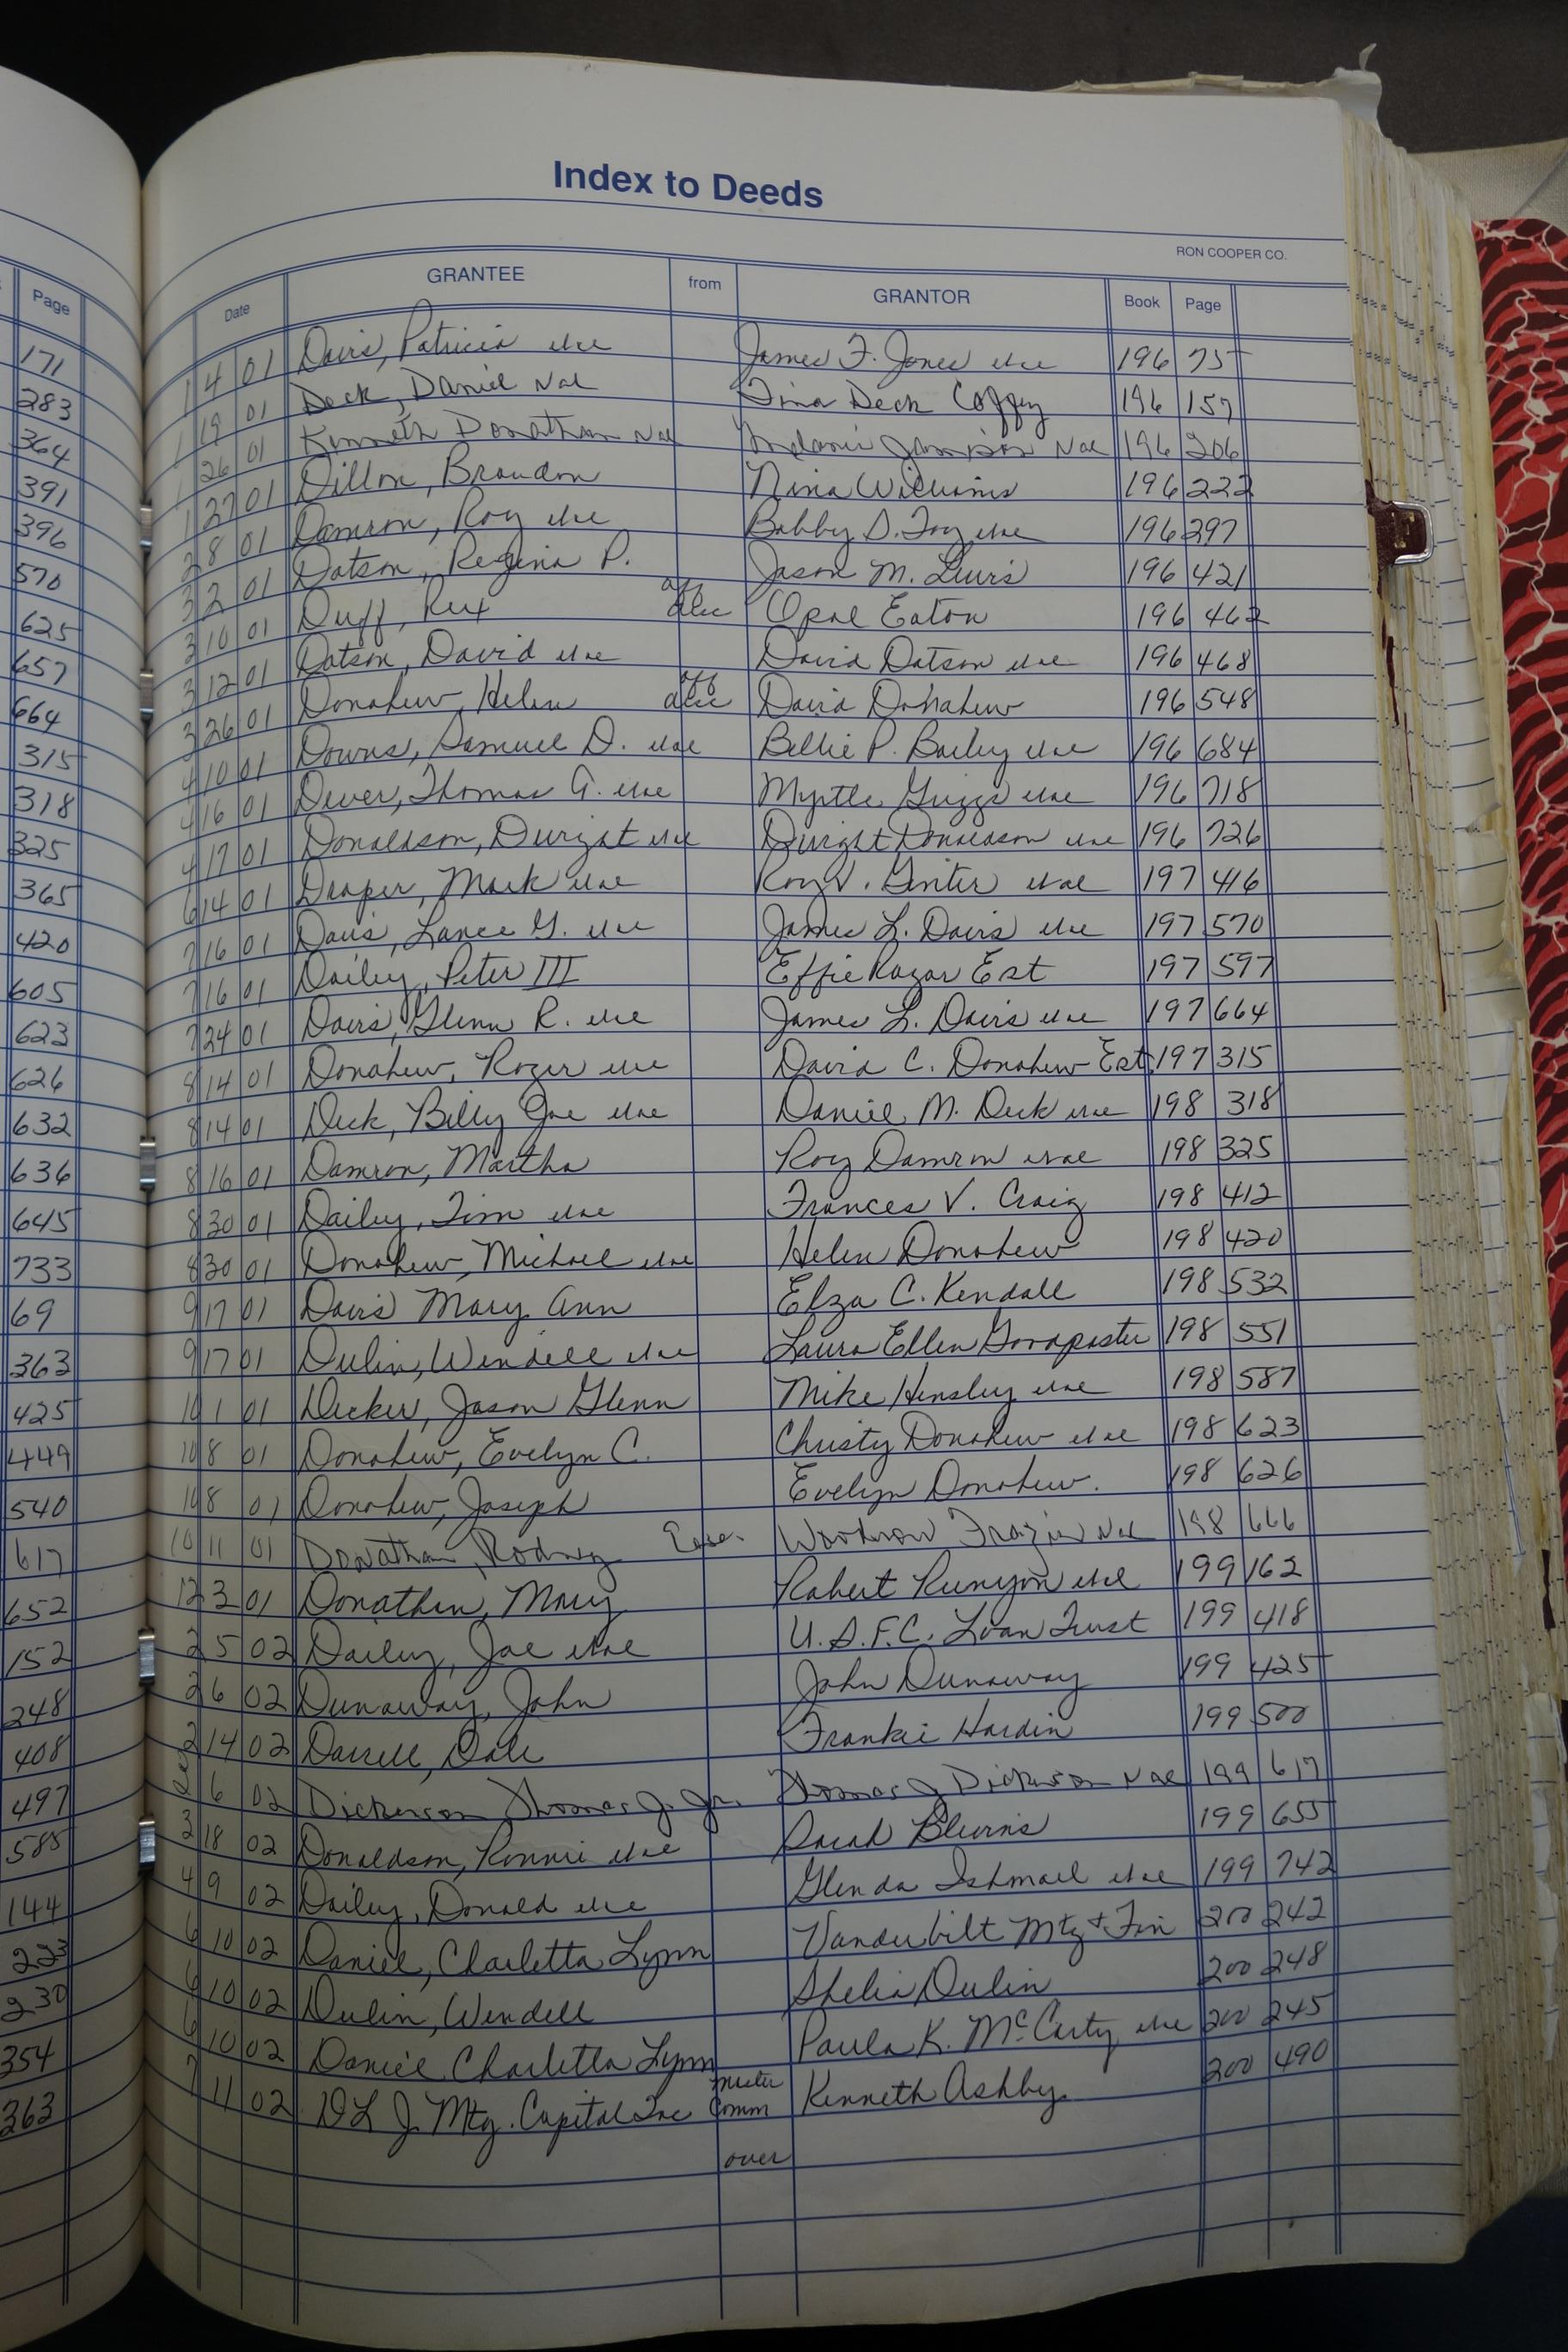 Index to Deeds
RON COOPER CO.
Page
Date GRANTEE from GRANTOR Book Page
171
283
364
391
396
570
625
657
664
315
318
325
365
420
605
623
626
632
636
645
733
69
363
425
449
540
617
652
152
248
408
497
585
144
223
230
354
363
1 4 01 Davis, Patricia James F. Jones 196 75
1 19 01 Deck, Daniel Tina Deck Coffey 196 157
1 26 01 Kenneth Donathan 196 206
1 27 01 Dillon, Brandon Nina Williams 196 222
2 8 01 Damron, Roy Bobby D. 196 297
3 2 01 Dotson, Regina P. Jason M. Lewis 196 421
3 10 01 Duff, Rex aff desc Opal Eaton 196 462
3 12 01 Dotson, David David Dotson 196 468
3 26 01 Donahew, Helen aff desc David Donahew 196 548
4 10 01 Downs, Samuel D. Billie P. Bailey 196 684
4 16 01 Dever, Thomas A. Myrtle Griggs 196 718
4 17 01 Donaldson, Dwight Dwight Donaldson 196 726
6 14 01 Draper, Mark Roy V. Ginter 197 416
7 16 01 Davis, Lance G. James L. Davis 197 570
7 16 01 Dailey, Peter III Effie Razor Est 197 597
7 24 01 Davis, Glenn R. James L. Davis 197 664
8 14 01 Donahew, Roger David C. Donahew Est. 197 315
8 14 01 Deck, Billy Joe Daniel M. Deck 198 318
8 16 01 Damron, Martha Roy Damron 198 325
8 30 01 Dailey, Tim Frances V. Craig 198 412
8 30 01 Donahew, Michael Helen Donahew 198 420
9 17 01 Davis Mary Ann Elza C. Kendall 198 532
9 17 01 Dulin, Wendell Laura Ellen Goodpaster 198 551
10 1 01 Decker, Jason Glenn Mike Hensley 198 587
10 8 01 Donahew, Evelyn C. Christy Donahew 198 623
10 8 01 Donahew, Joseph Evelyn Donahew. 198 626
10 11 01 Donathan, Rodney Ease. Woodrow Frazier 198 666
12 3 01 Donathan, Mary Robert Runyon 199 162
2 5 02 Dailey, Joe U.S.F.C. Loan Trust 199 418
2 6 02 Dunaway, John John Dunaway 199 425
2 14 02 Darrell, Dale Frankie Hardin 199 500
6 02 Dickerson Thomas J. Jr. Thomas J Dickerson 199 617
3 18 02 Donaldson, Ronnie Sarah Blevins 199 655
4 9 02 Dailey, Donald Glenda Ishmael 199 742
6 10 02 Daniel, Charletta Lynn Vanderbilt Mtg + Fin 200 242
6 10 02 Dulin, Wendell Shelia Dulin 200 248
6 10 02 Daniel Charletta Lynn Paula K. McCarty 200 245
7 11 02 DLJ Mtg. Capital Inc Master Comm Kenneth Ashby 200 490
over